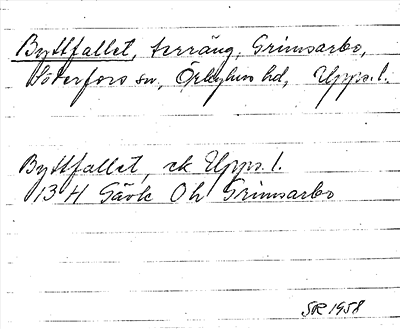 Byttfallet, terräng, Grimsarbo,
Söderfors sn, Örbyhus hd, Upps. l.
Byttfallet, ek Upps. l.
13 H Gävle Oh Grimsarbo
SR 1958